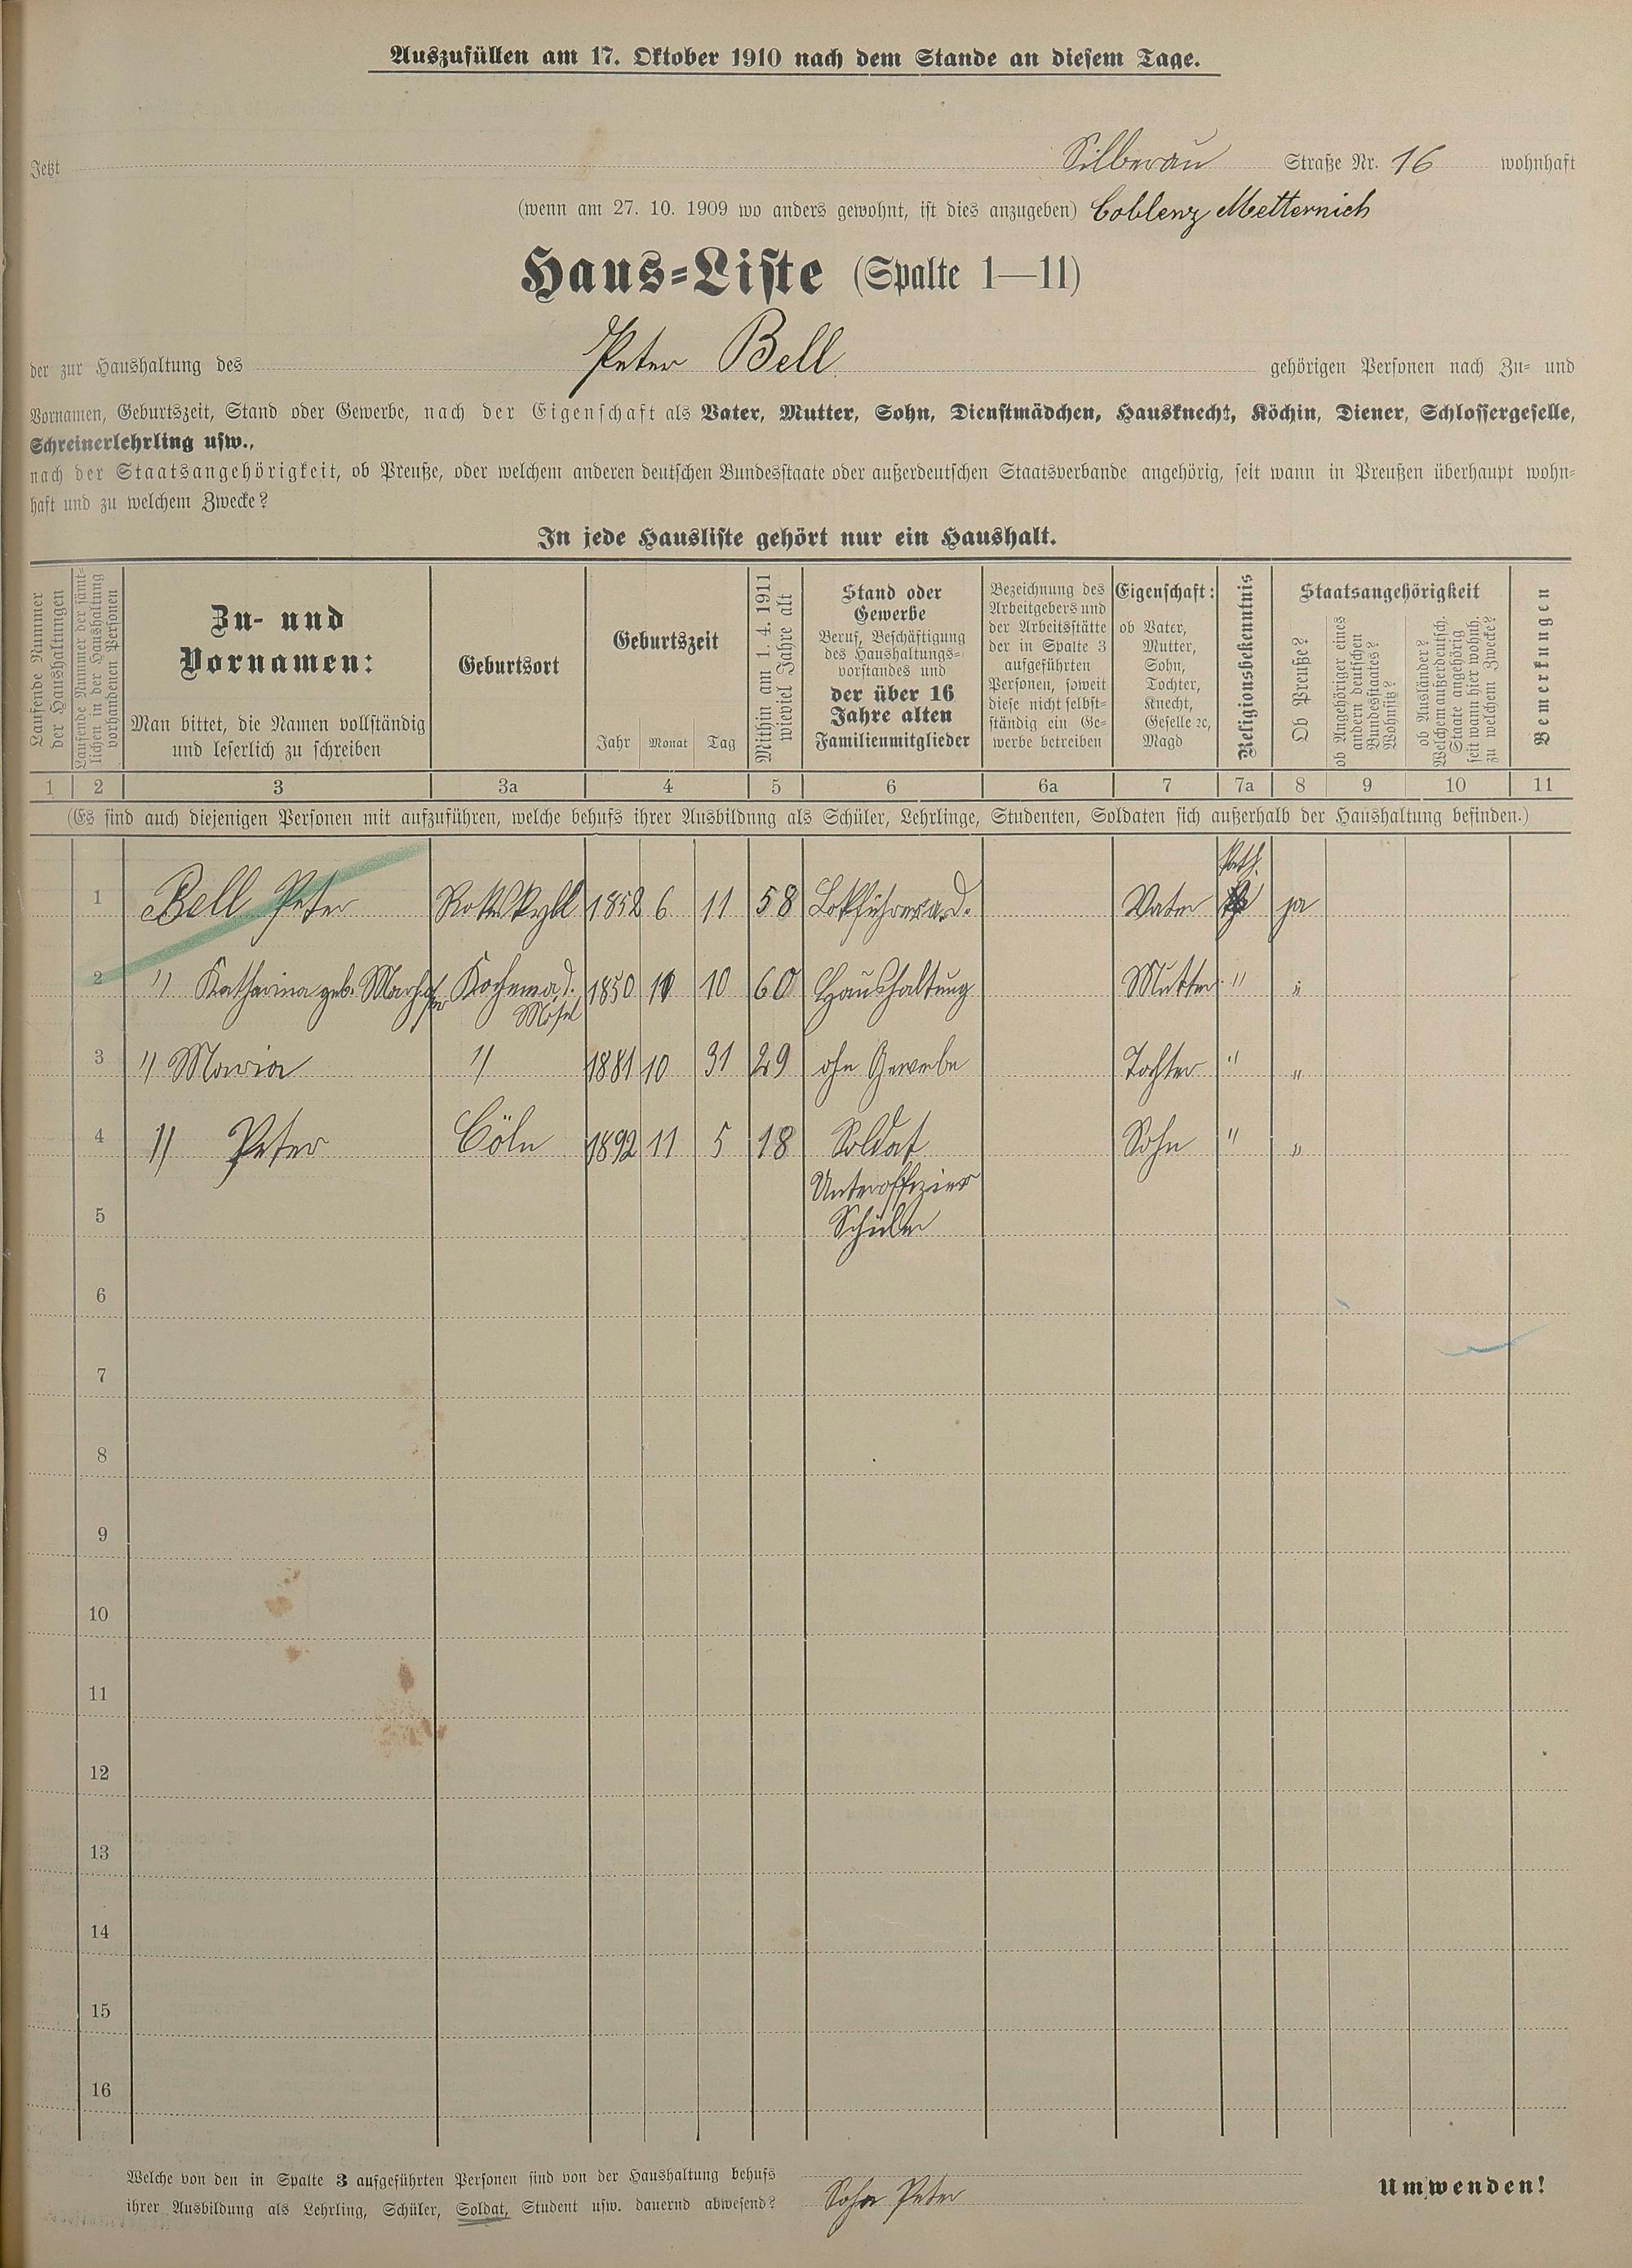 Auszufüllen am 17. Oktober 1910 nach dem Stande an diesem Tage.
Jetzt Silberau Straße Nr. 16 wohnhaft
(wenn am 27. 10. 1909 wo anders gewohnt, ist dies anzugeben) Coblenz Metternich
Haus-Liste (Spalte 1—11)
der zur Haushaltung des Peter Bell gehörigen Personen nach Zu- und
Vornamen, Geburtszeit, Stand oder Gewerbe, nach der Eigenschaft als Vater, Mutter, Sohn, Dienstmädchen, Hausknecht, Köchin, Diener, Schlossergeselle,
Schreinerlehrling usw.,
nach der Staatsangehörigkeit, ob Preuße, oder welchem anderen deutschen Bundesstaate oder außerdeutschen Staatsverbande angehörig, seit wann in Preußen überhaupt wohn-
haft und zu welchem Zwecke?
In jede Hausliste gehört nur ein Haushalt.
Laufende Nummer
der Haushaltungen
Laufende Nummer der sämt-
lichen in der Haushaltung
vorhandenen Personen
Zu- und
Vornamen:
Man bittet, die Namen vollständig
und leserlich zu schreiben
Geburtsort
Geburtszeit
Jahr Monat Tag
Mithin am 1. 4. 1911
wieviel Jahre alt
Stand oder
Gewerbe
Beruf, Beschäftigung
des Haushaltungs-
vorstandes und
der über 16
Jahre alten
Familienmitglieder
Bezeichnung des
Arbeitgebers und
der Arbeitsstätte
der in Spalte 3
aufgeführten
Personen, soweit
diese nicht selbst-
ständig ein Ge-
werbe betreiben
Eigenschaft:
ob Vater,
Mutter,
Sohn,
Tochter,
Knecht,
Geselle ꝛc,
Magd
Religionsbekenntnis
Staatsangehörigkeit
Ob Preuße?
ob Angehöriger eines
andern deutschen
Bundesstaates?
Wohnsitz?
ob Ausländer?
Welchem außerdeutsch.
Staate angehörig
seit wann hier wohnh.
zu welchem Zwecke?
Bemerkungen
1 2 3 3a 4 5 6 6a 7 7a 8 9 10 11
(Es sind auch diejenigen Personen mit aufzuführen, welche behufs ihrer Ausbildung als Schüler, Lehrlinge, Studenten, Soldaten sich außerhalb der Haushaltung befinden.)
kath.
1 Bell Peter 1852 6 11 58 Lokführer a. D. Vater ja
2 " Katharina geb. Kochem a. d. 1850 10 60 Haushaltung Mutter " "
Mosel
3 " Maria " 1881 10 31 29 ohn Gewerbe Tochter " "
4 " Peter Cöln 1892 11 5 18 Soldat Sohn " "
Unteroffizier
5 Schüler
6
7
8
9
10
11
12
13
14
15
16
Welche von den in Spalte 3 aufgeführten Personen sind von der Haushaltung behufs
ihrer Ausbildung als Lehrling, Schüler, Soldat, Student usw. dauernd abwesend? Sohn Peter
Umwenden!